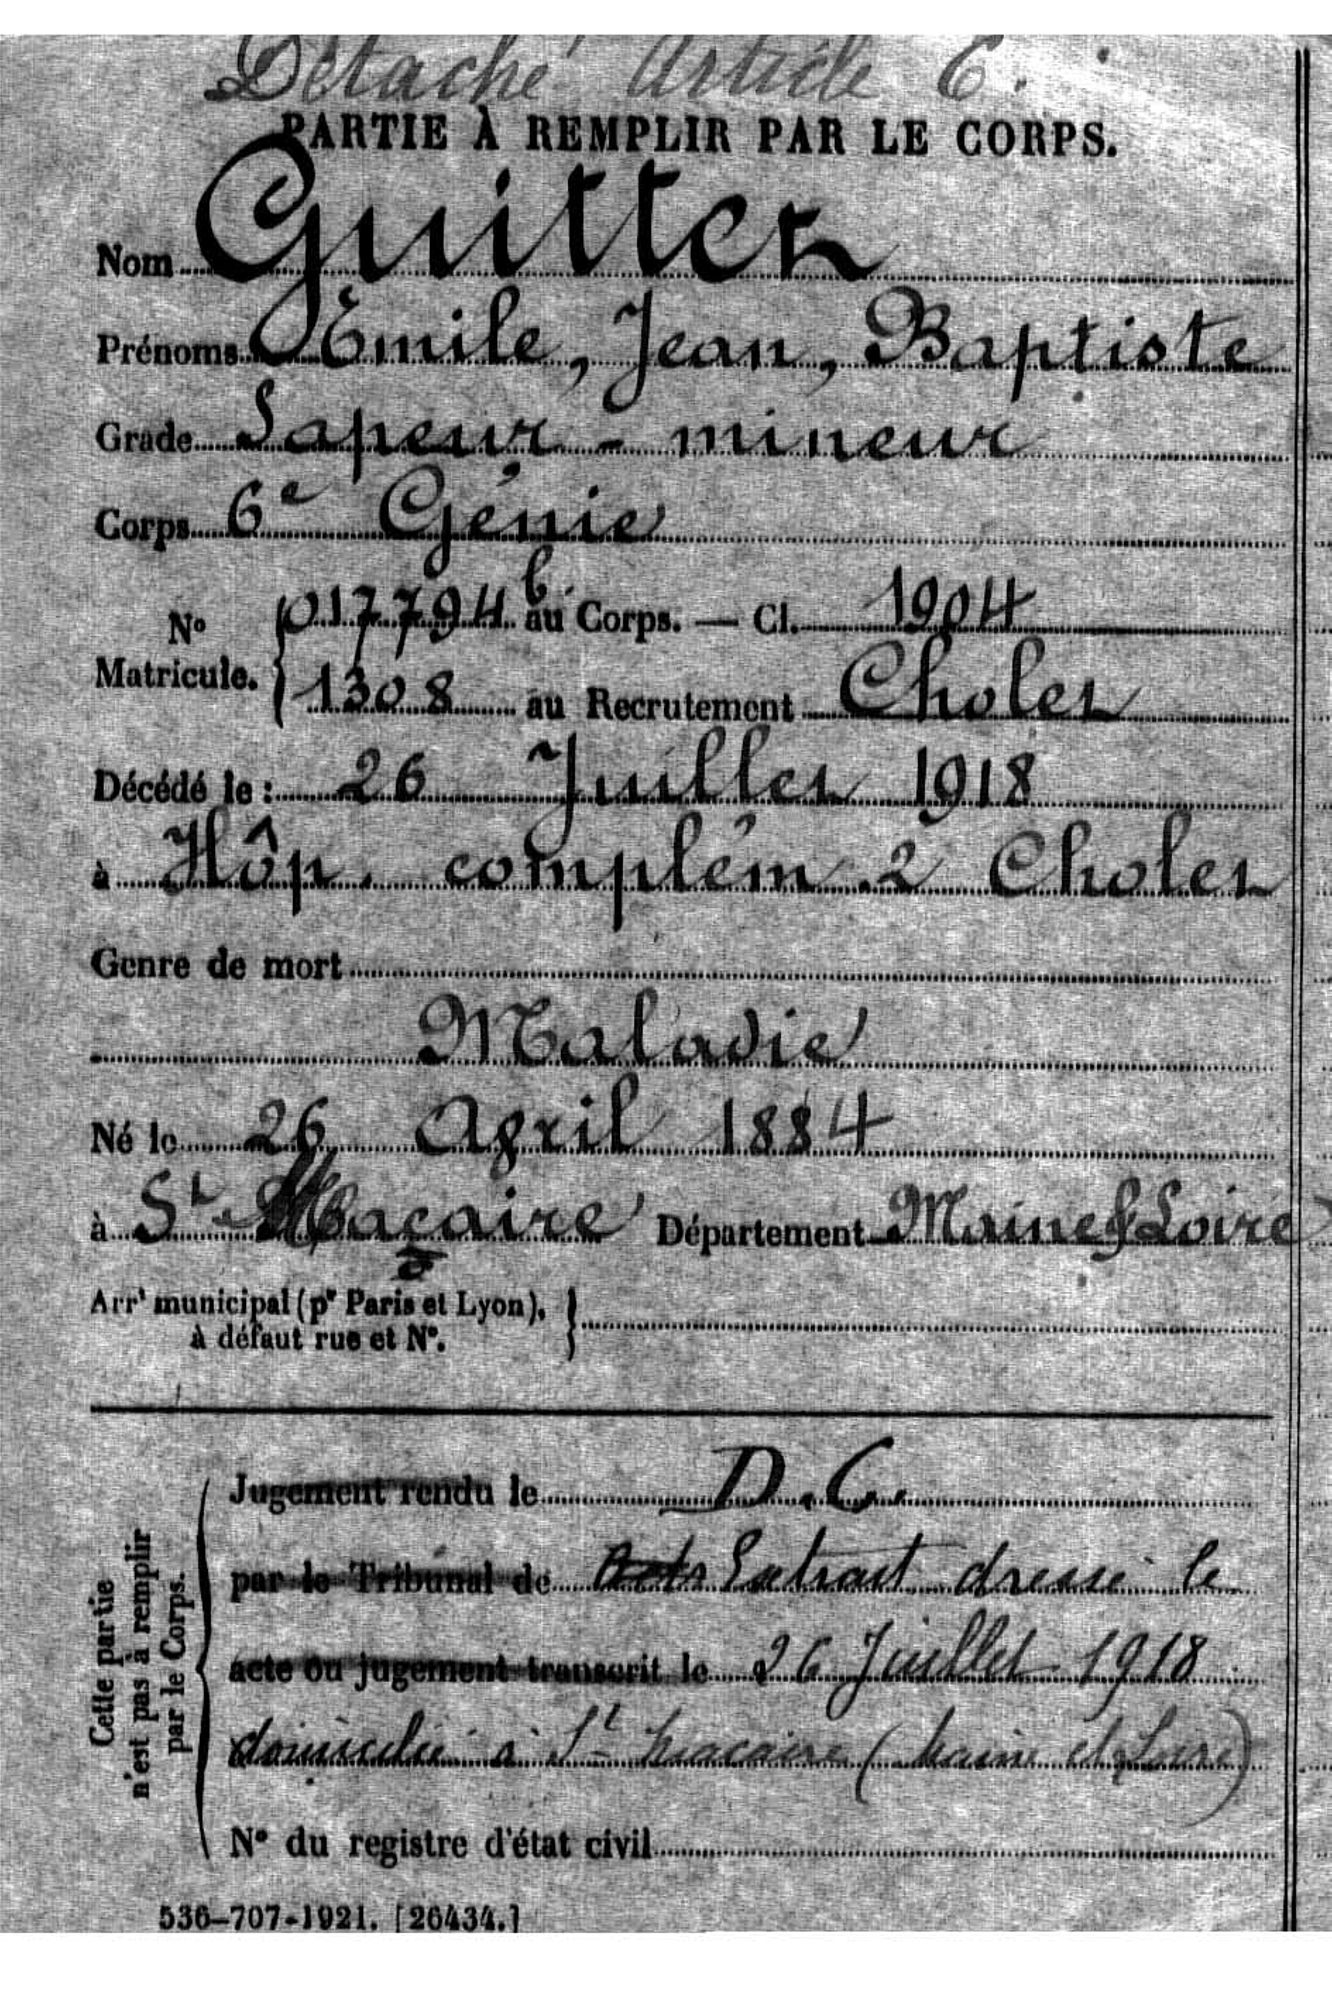 Détaché Article 6.
PARTIE À REMPLIR PAR LE CORPS.
Nom Guitter
Prénoms Émile, Jean, Baptiste
Grade Sapeur - mineur
Corps 6e Génie
No Matricule. 017794 b. au Corps. — Cl. 1904
1308 au Recrutement Cholet
Décédé le : 26 Juillet 1918
à Hôp. complém. 2 Cholet
Genre de mort
Maladie
Né le 26 April 1884
à St Macaire Département Maine & Loire
Arrt municipal (pr Paris et Lyon),
à défaut rue et No.
Cette partie
n'est pas à remplir
par le Corps.
Jugement rendu le D.C.
par le Tribunal de Acte Extrait dressé le
acte ou jugement transcrit le 26 Juillet 1918
domicilié à St Macaire (Maine et Loire)
No du registre d'état civil
536-707-1921. [26434.]